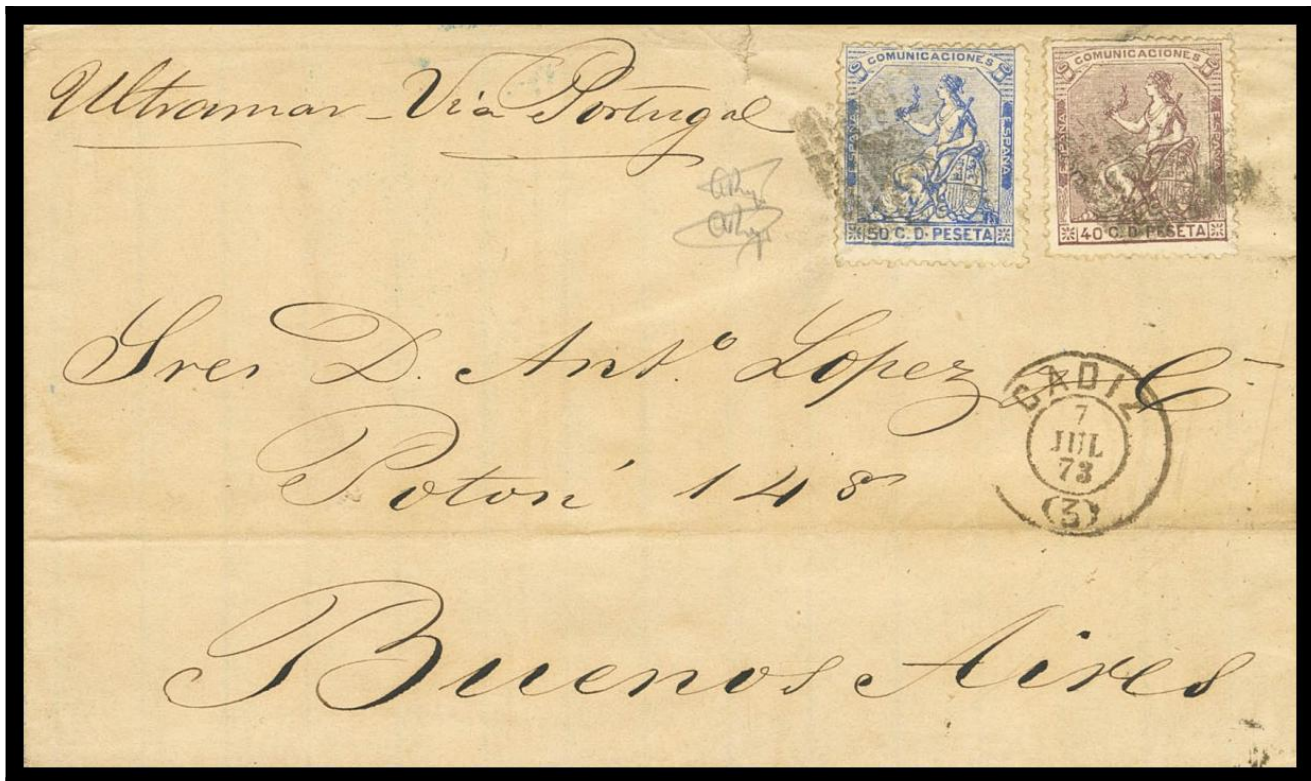 Ultramar - Via Portugal
COMUNICACIONES
ESPAÑA
ESPAÑA
50 C. D. PESETA
COMUNICACIONES
ESPAÑA
ESPAÑA
40 C. D. PESETA
Sres D. Ant.º Lopez C
CADIZ
7
JUL
73
(3)
Potosí 148
Buenos Aires